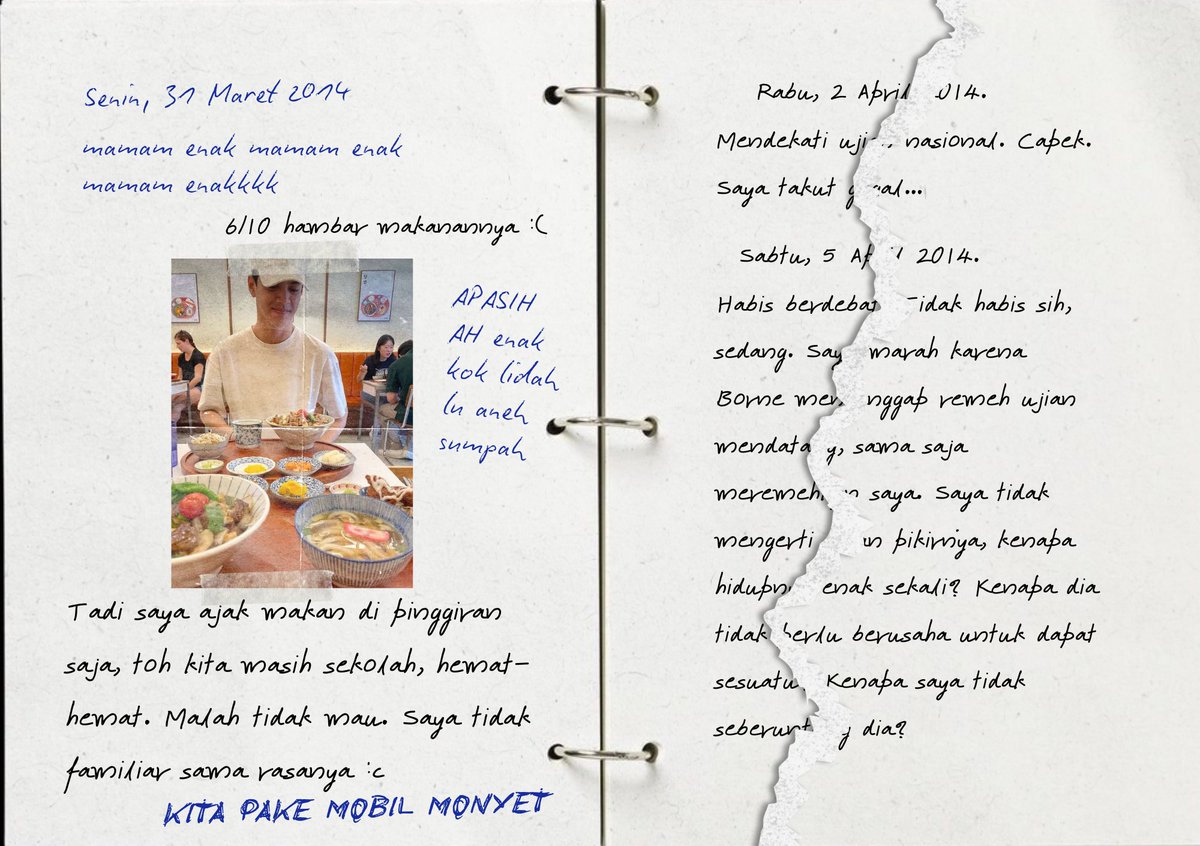 Senin, 31 Maret 2014
mamam enak mamam enak
mamam enakkkk
6/10 hambar makanannya :(
APASIH
AH enak
kok lidah
lu aneh
sumpah
Tadi saya ajak makan di pinggiran
saja, toh kita masih sekolah, hemat-
hemat. Malah tidak mau. Saya tidak
familiar sama rasanya :c
KITA PAKE MOBIL MONYET
Rabu, 2 April 2014.
Mendekati ujian nasional. Capek.
Saya takut gagal...
Sabtu, 5 April 2014.
Habis berdebat. Tidak habis sih,
sedang. Saya marah karena
Borne menganggap remeh ujian
mendatang, sama saja
meremehkan saya. Saya tidak
mengerti pikirnya, kenapa
hidupnya enak sekali? Kenapa dia
tidak perlu berusaha untuk dapat
sesuatu? Kenapa saya tidak
seberuntung dia?